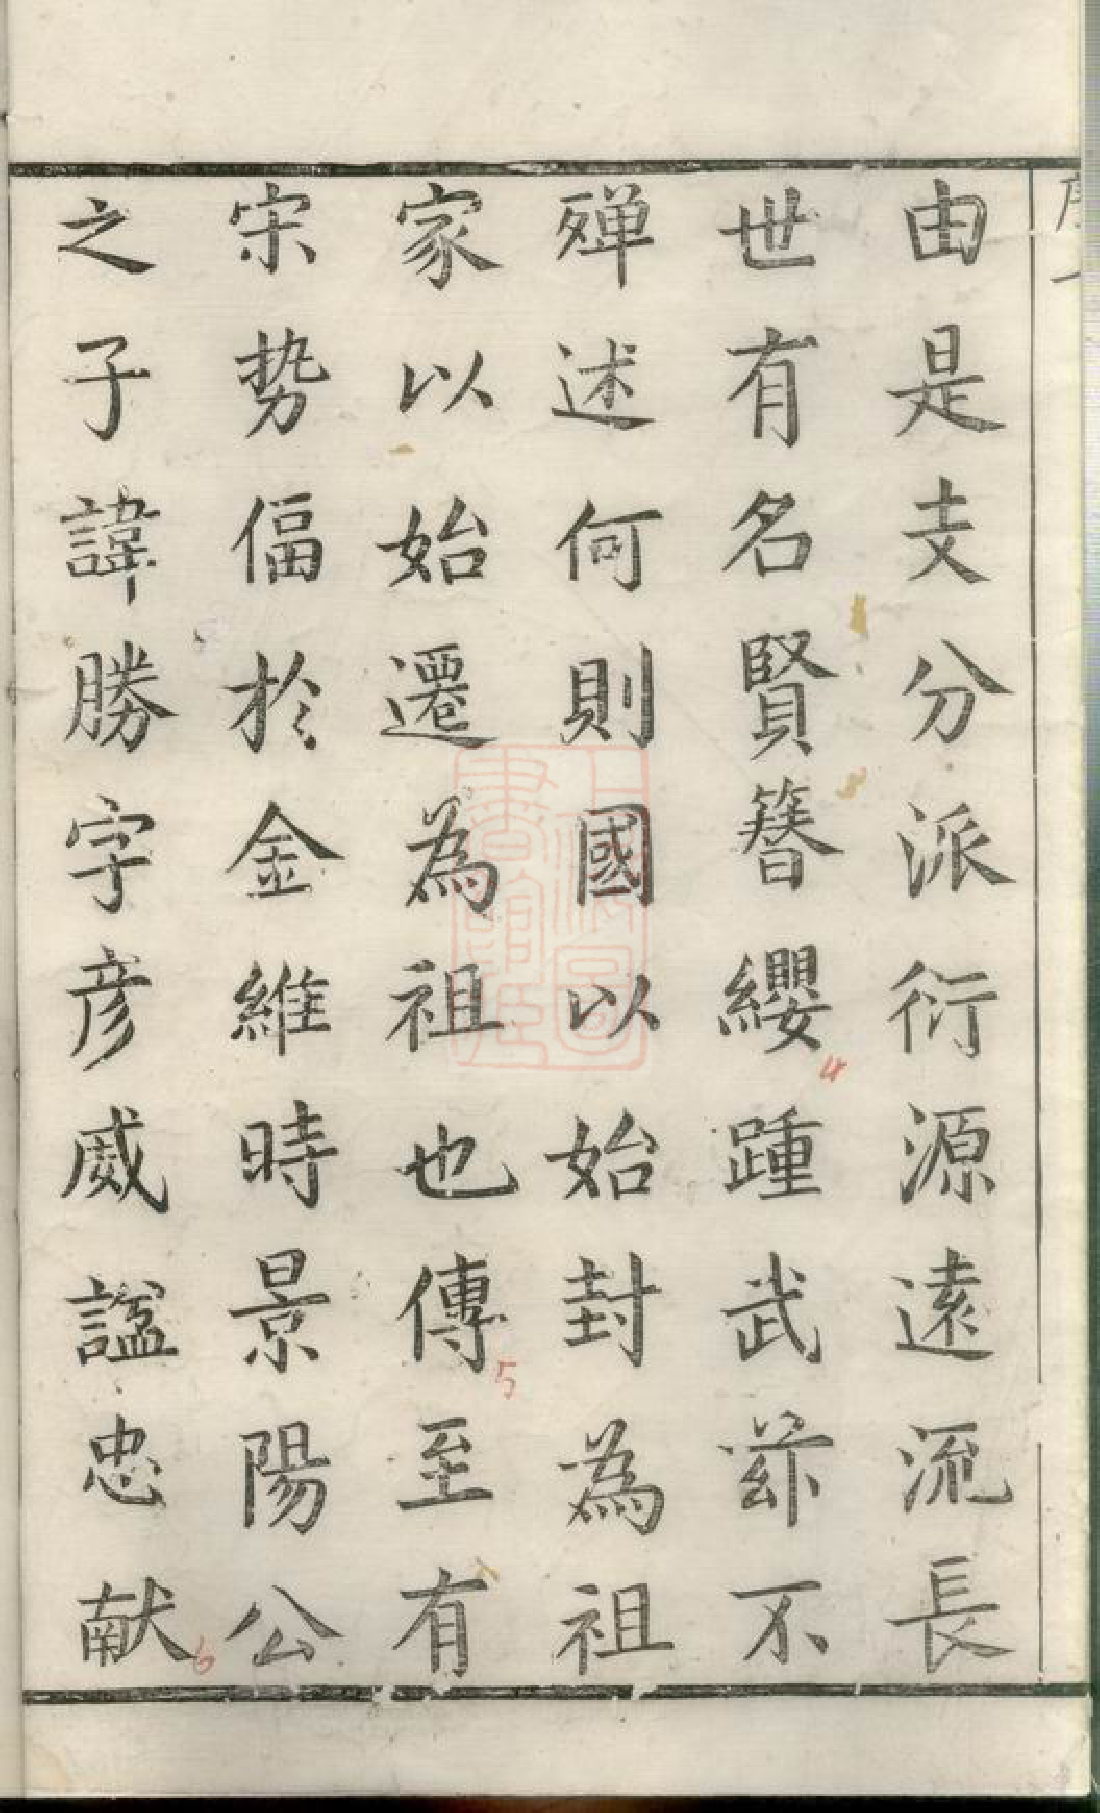 由是支分派衍源遠流長
世有名賢簪纓踵武茲不
殫述何則國以始封為祖
家以始遷為祖也傳至有
宋势偪於金維時景陽公
之子諱勝字彦威諡忠献
4
5
6